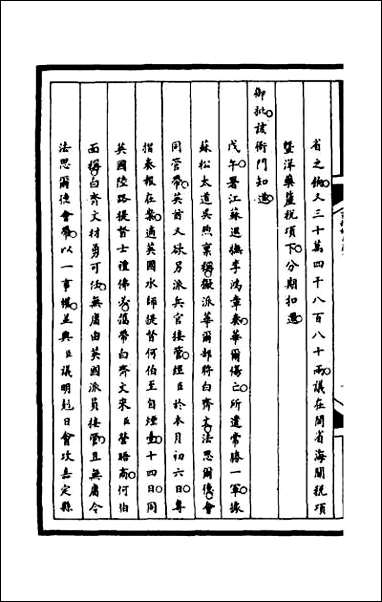 省之餉又三十萬四千八百八十兩議在閩省海關稅項
暨洋藥釐稅項下分期扣還
御批該衙門知道
戊午署江蘇巡撫李鴻章奏華爾傷亡所遺常勝一軍據
蘇松太道吳煦稟稱擬派華爾部將白齊文法思爾德會
同管帶英酋又欲另派兵官接管經臣於本月初六日專
摺奏報在案適英國水師提督何伯至自煙臺十四日同
英國陸路提督士禮佛必偕帶白齊文來臣營晤商何伯
面稱白齊文材勇可仗無庸由英國派員接管且無庸令
法思爾德會帶以一事權並與臣議明剋日會攻嘉定縣